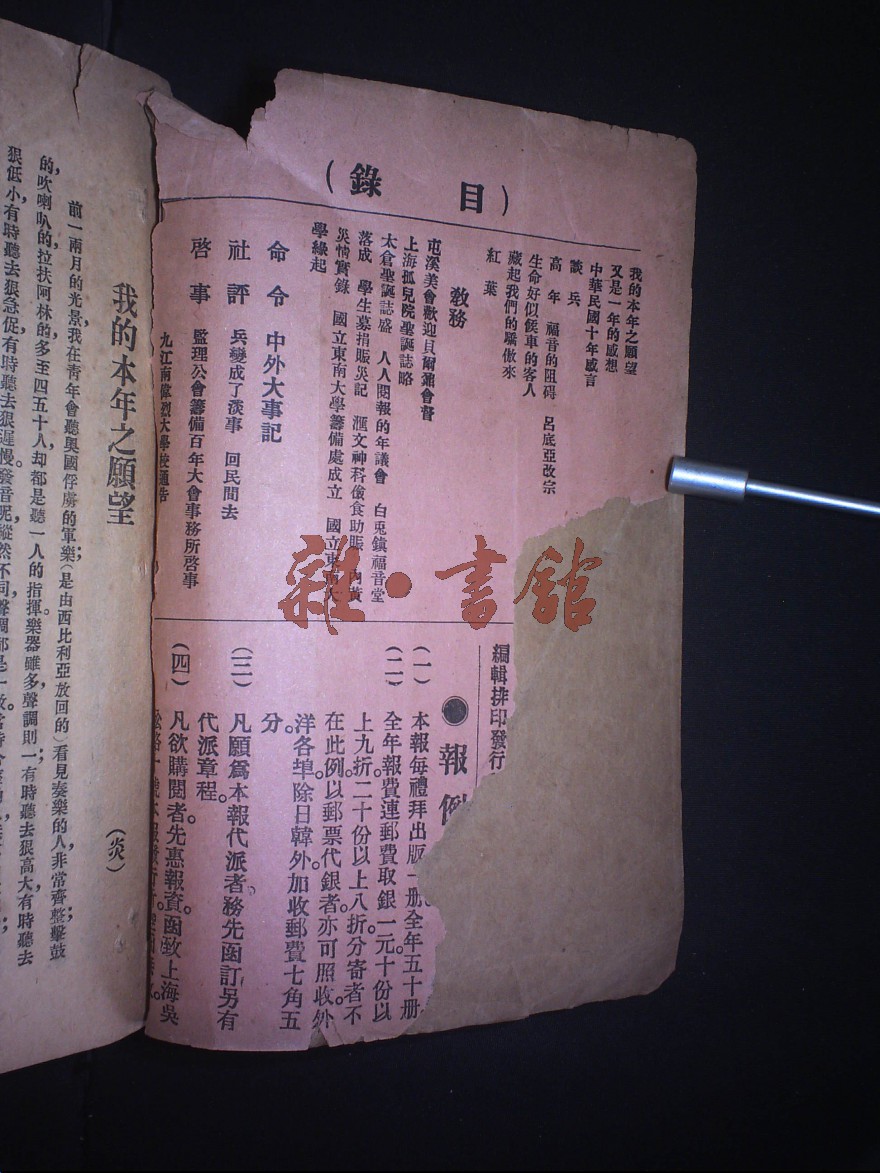 （目錄）
我的本年之願望
又是一年的感想
中華民國十年感言
談兵
高年　福音的阻碍　呂底亞改宗
生命好似候車的客人
藏起我們的驕傲來
紅葉
教務
屯溪美會歡迎貝爾瀰會督
上海孤兒院聖誕誌略
太倉聖誕誌盛　人人閱報的年議會　白兎鎮福音堂
落成　學生募捐賑災記　滙文神科儉食助賑　內黃
災情實錄　國立東南大學籌備處成立　國立東南大
學緣起
命令　中外大事記
社評　兵變成了淡事　回民間去
啓事　監理公會籌備百年大會事務所啓事
九江南偉烈大學校通告
編輯排印發行
●報例
（一）本報每禮拜出版一册全年五十册。
（二）全年報費連郵費取銀一元十份以
上九折二十份以上八折分寄者不
在此例。以郵票代銀者亦可照收。外
洋各埠除日韓外加收郵費七角五
分
（三）凡願爲本報代派者務先函訂另有
代派章程。
（四）凡欲購閱者。先惠報資。函致上海吳
雜·書館
我的本年之願望
（炎）
前一兩月的光景，我在青年會聽奧國俘虜的軍樂（是由西比利亞放回的）；看見奏樂的人，非常齊整；擊鼓
的，吹喇叭的，拉扶阿林的，多至四五十人，却都是聽一人的指揮。樂器雖多，聲調則一；有時聽去狠高大，有時聽去
狠低小，有時聽去狠急促，有時聽去狠遲慢。發音呢，縱然不同，